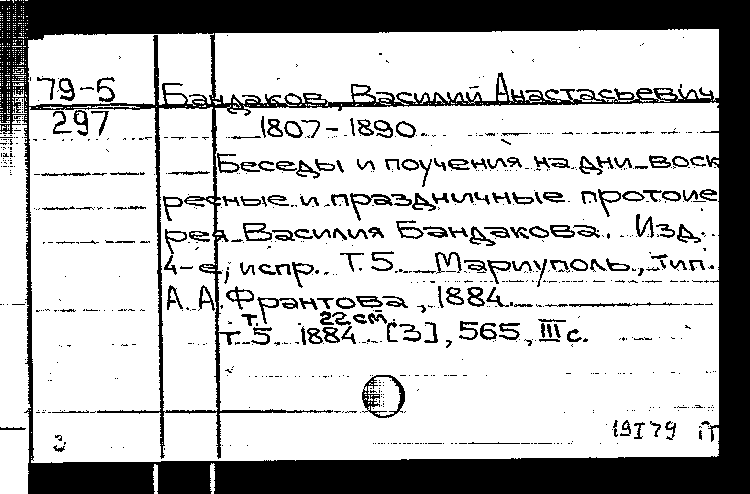 79-5 Бандаков, Василий Анастасьевич
297 1807-1890
Беседы и поучения на дни воск
ресные и праздничные протоие
рея Василия Бандакова. Изд.
4-е, испр. Т.5. Мариуполь, тип.
А.А. Франтова, 1884.
т. 22 см.
Т.5. 1884 [3], 565, III с.
19I79